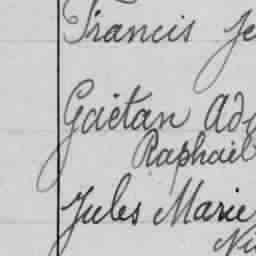 Francis Je
Gaëtan Ado
Raphaël
Jules Marie
Ni